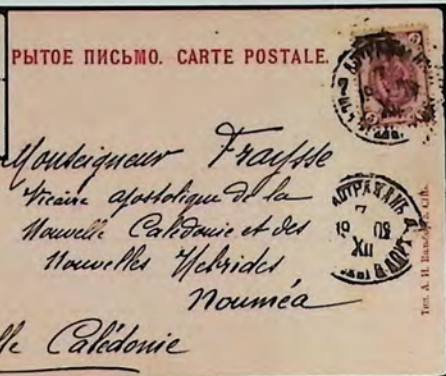 РЫТОЕ ПИСЬМО. CARTE POSTALE.
Monseigneur Fraysse
Vicaire apostolique de la
Nouvelle Calédonie et des
Nouvelles Hebrides
Nouméa
lle Calédonie
7
19 02
XII